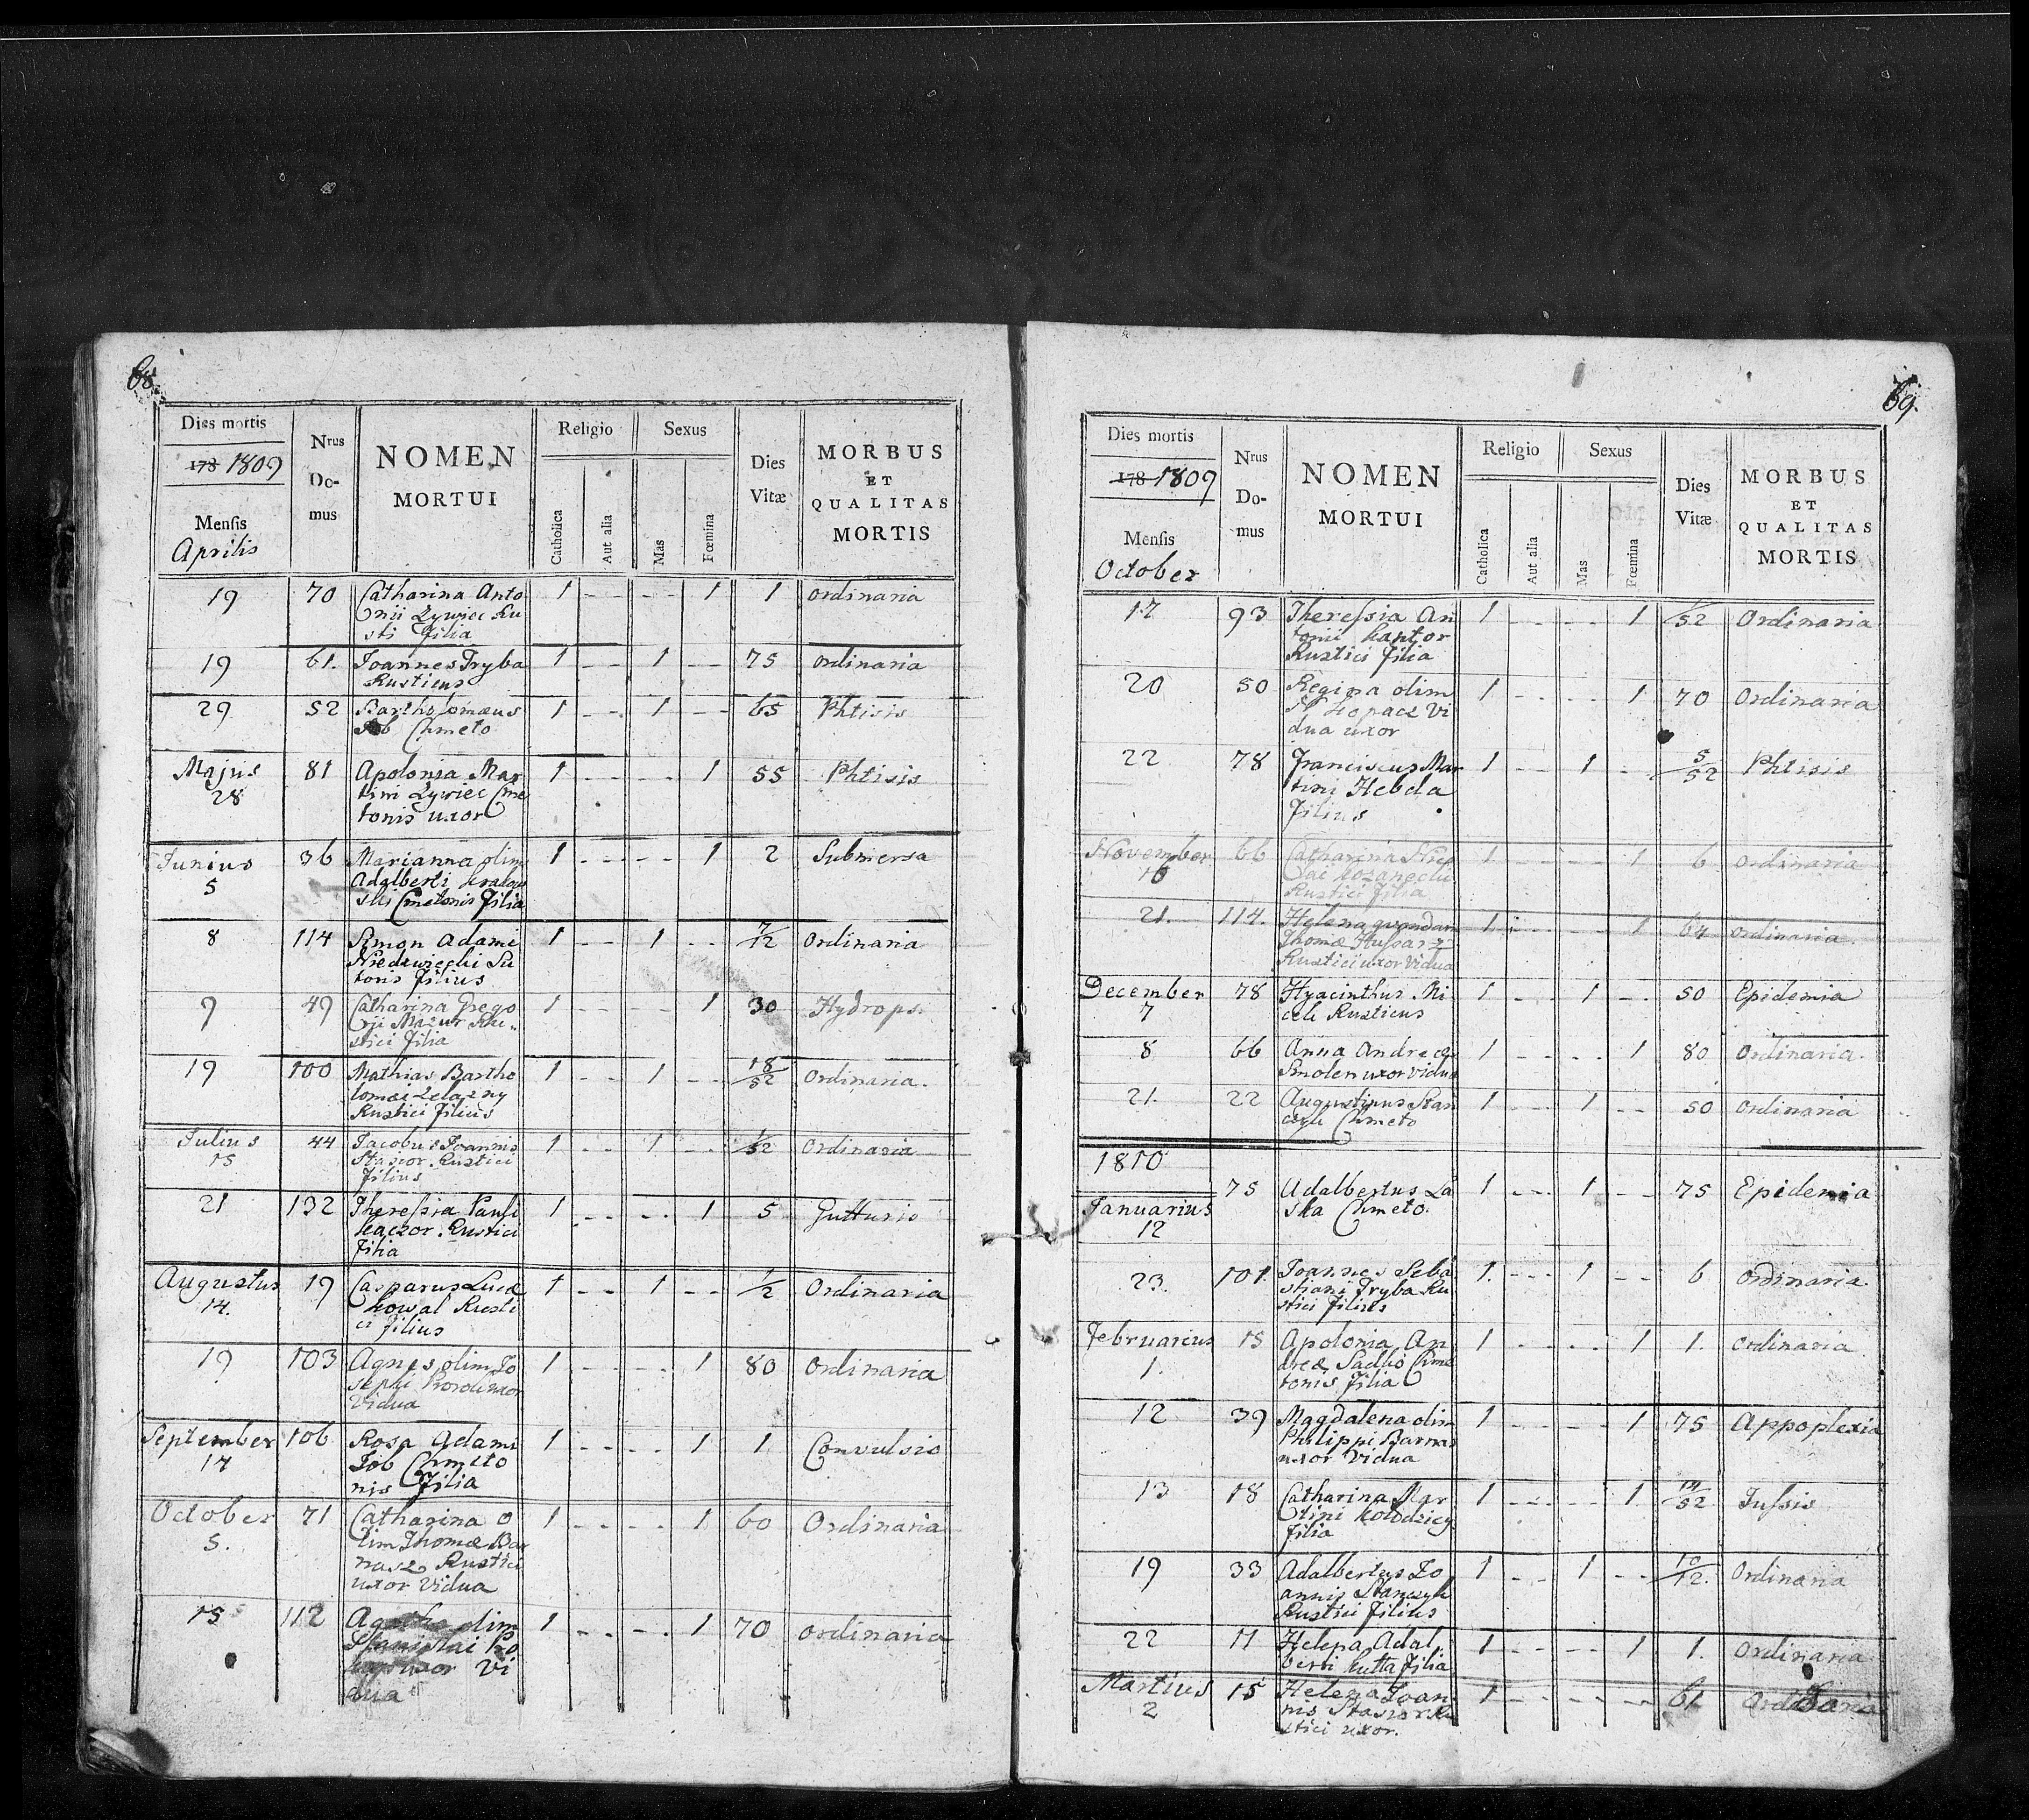 68.
Dies mortis
178 1809
Mensis
Aprilis
Nrus
Do-
mus
NOMEN
MORTUI
Religio
Sexus
Catholica
Aut alia
Mas
Fœmina
Dies
Vitæ
MORBUS
ET
QUALITAS
MORTIS
19 70 Catharina Anto 1 1 1 ordinaria
nii Zywiec Ru
sti Filia
19 61. Joannes Tryba 1 1 75 ordinaria
Rusticus
29 52 Bartholomæus 1 1 65 Phtisis
Job Cmeto
Majus 81 Apolonia Mar 1 1 55 Phtisis
28 tini Zywiec Cme
tonis uxor
Junius 36 Marianna olim 1 1 2 Submersa
5 Adalberti
ski Cmetonis Filia
8 114 Simon Adami 1 1 7/12 Ordinaria
Niedzwiecki Su
toris Filius
9 49 Catharina Grego 1 1 30 Hydrops.
rii Mazur Ru-
stici Filia
19 100 Mathias Bartho 1 1 18/52 Ordinaria.
lomæi Zelazny
Rustici Filius
Julius 44 Jacobus Joannis 1 1 1/52 Ordinaria
15 Stasior Rustici
Filius
21 132 Theressia Pauli 1 1 5 Gutturis
Kaczor Rustici
Filia
Augustus 19 Casparus Lucæ 1 1 1/2 Ordinaria
14. Kowal Rusti
ci Filius
19 103 Agnes olim Jo 1 1 80 Ordinaria
sephi uxor
Vidua
September 106 Rosa Adami 1 1 1 Convulsio
17 Job Cmeto
nis Filia
October 71 Catharina o 1 1 60 Ordinaria
5. lim Thomæ Bar
nasz Rustici
uxor Vidua
15 112 Agatha olim 1 1 70 ordinaria
Stanislai
uxor Vi
dua
69.
Dies mortis
178 1809
Mensis
October
Nrus
Do-
mus
NOMEN
MORTUI
Religio
Sexus
Catholica
Aut alia
Mas
Fœmina
Dies
Vitæ
MORBUS
ET
QUALITAS
MORTIS
17 93 Theressia An 1 1 1/52 Ordinaria
tonii Kantor
Rustici Filia
20 50 Regina olim 1 1 70 Ordinaria
Łopacz Vi
dua uxor
22 78 Franciscus Mar 1 1 5/52 Phtisis
tini Hebda
Filius
November 66 Catharina 1 1 6 ordinaria
16
Rustici Filia
21. 114. Helena quondam 1 1 64 ordinaria.
Thomæ Hussarz
Rustici uxor Vidua
December 78 Hyacinthus Mi 1 1 50 Epidemia
7 cek Rusticus
8 66 Anna Andreæ 1 1 80 Ordinaria.
Smolen uxor vidua
21. 22 Augustinus Stan 1 1 50 ordinaria
czyk Cmeto
1810
75 Adalbertus La 1 1 75 Epidemia
Januarius ska Cmeto.
12
23. 101. Joannes Seba 1. 1 6 Ordinaria
stiani Tryba Ru
stici Filius
Februarius 15 Apolonia An 1 1 1. ordinaria.
1. dreæ Sadło Cme
tonis Filia
12 39 Magdalena olim 1 1 75 Appoplexia
Philippi Barnas
uxor Vidua
13 18 Catharina Mar 1 1 /52 Tussis
tini Kołodziey
Filia
19 33 Adalbertus Jo 1 1 10/12. Ordinaria
annis Stanczyk
Rustici Filius
22 11 Helena Adal 1 1 1. Ordinaria
berti Kutta Filia
Martius 15 Helena Joan 1 61 Ordinaria
2 nis Stasior Ru
stici uxor.